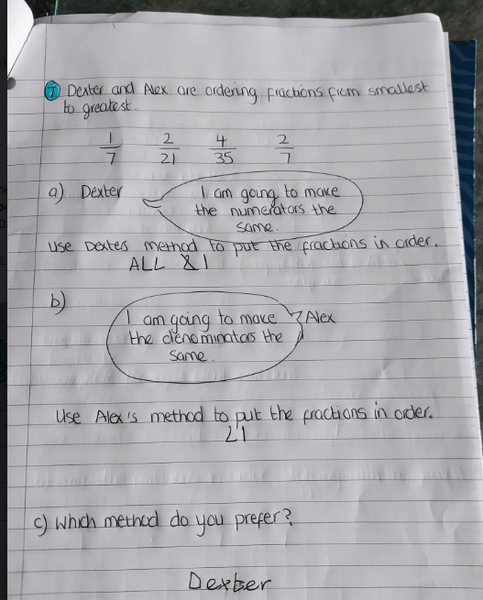 7 Dexter and Alex are ordering fractions from smallest
to greatest.
1/7 2/21 4/35 2/7
a) Dexter
I am going to make
the numerators the
same.
Use Dexters method to put the fractions in order.
ALL
b)
I am going to make
the denominators the
same.
Alex
Use Alex's method to put the fractions in order.
21
c) Which method do you prefer?
Dexter